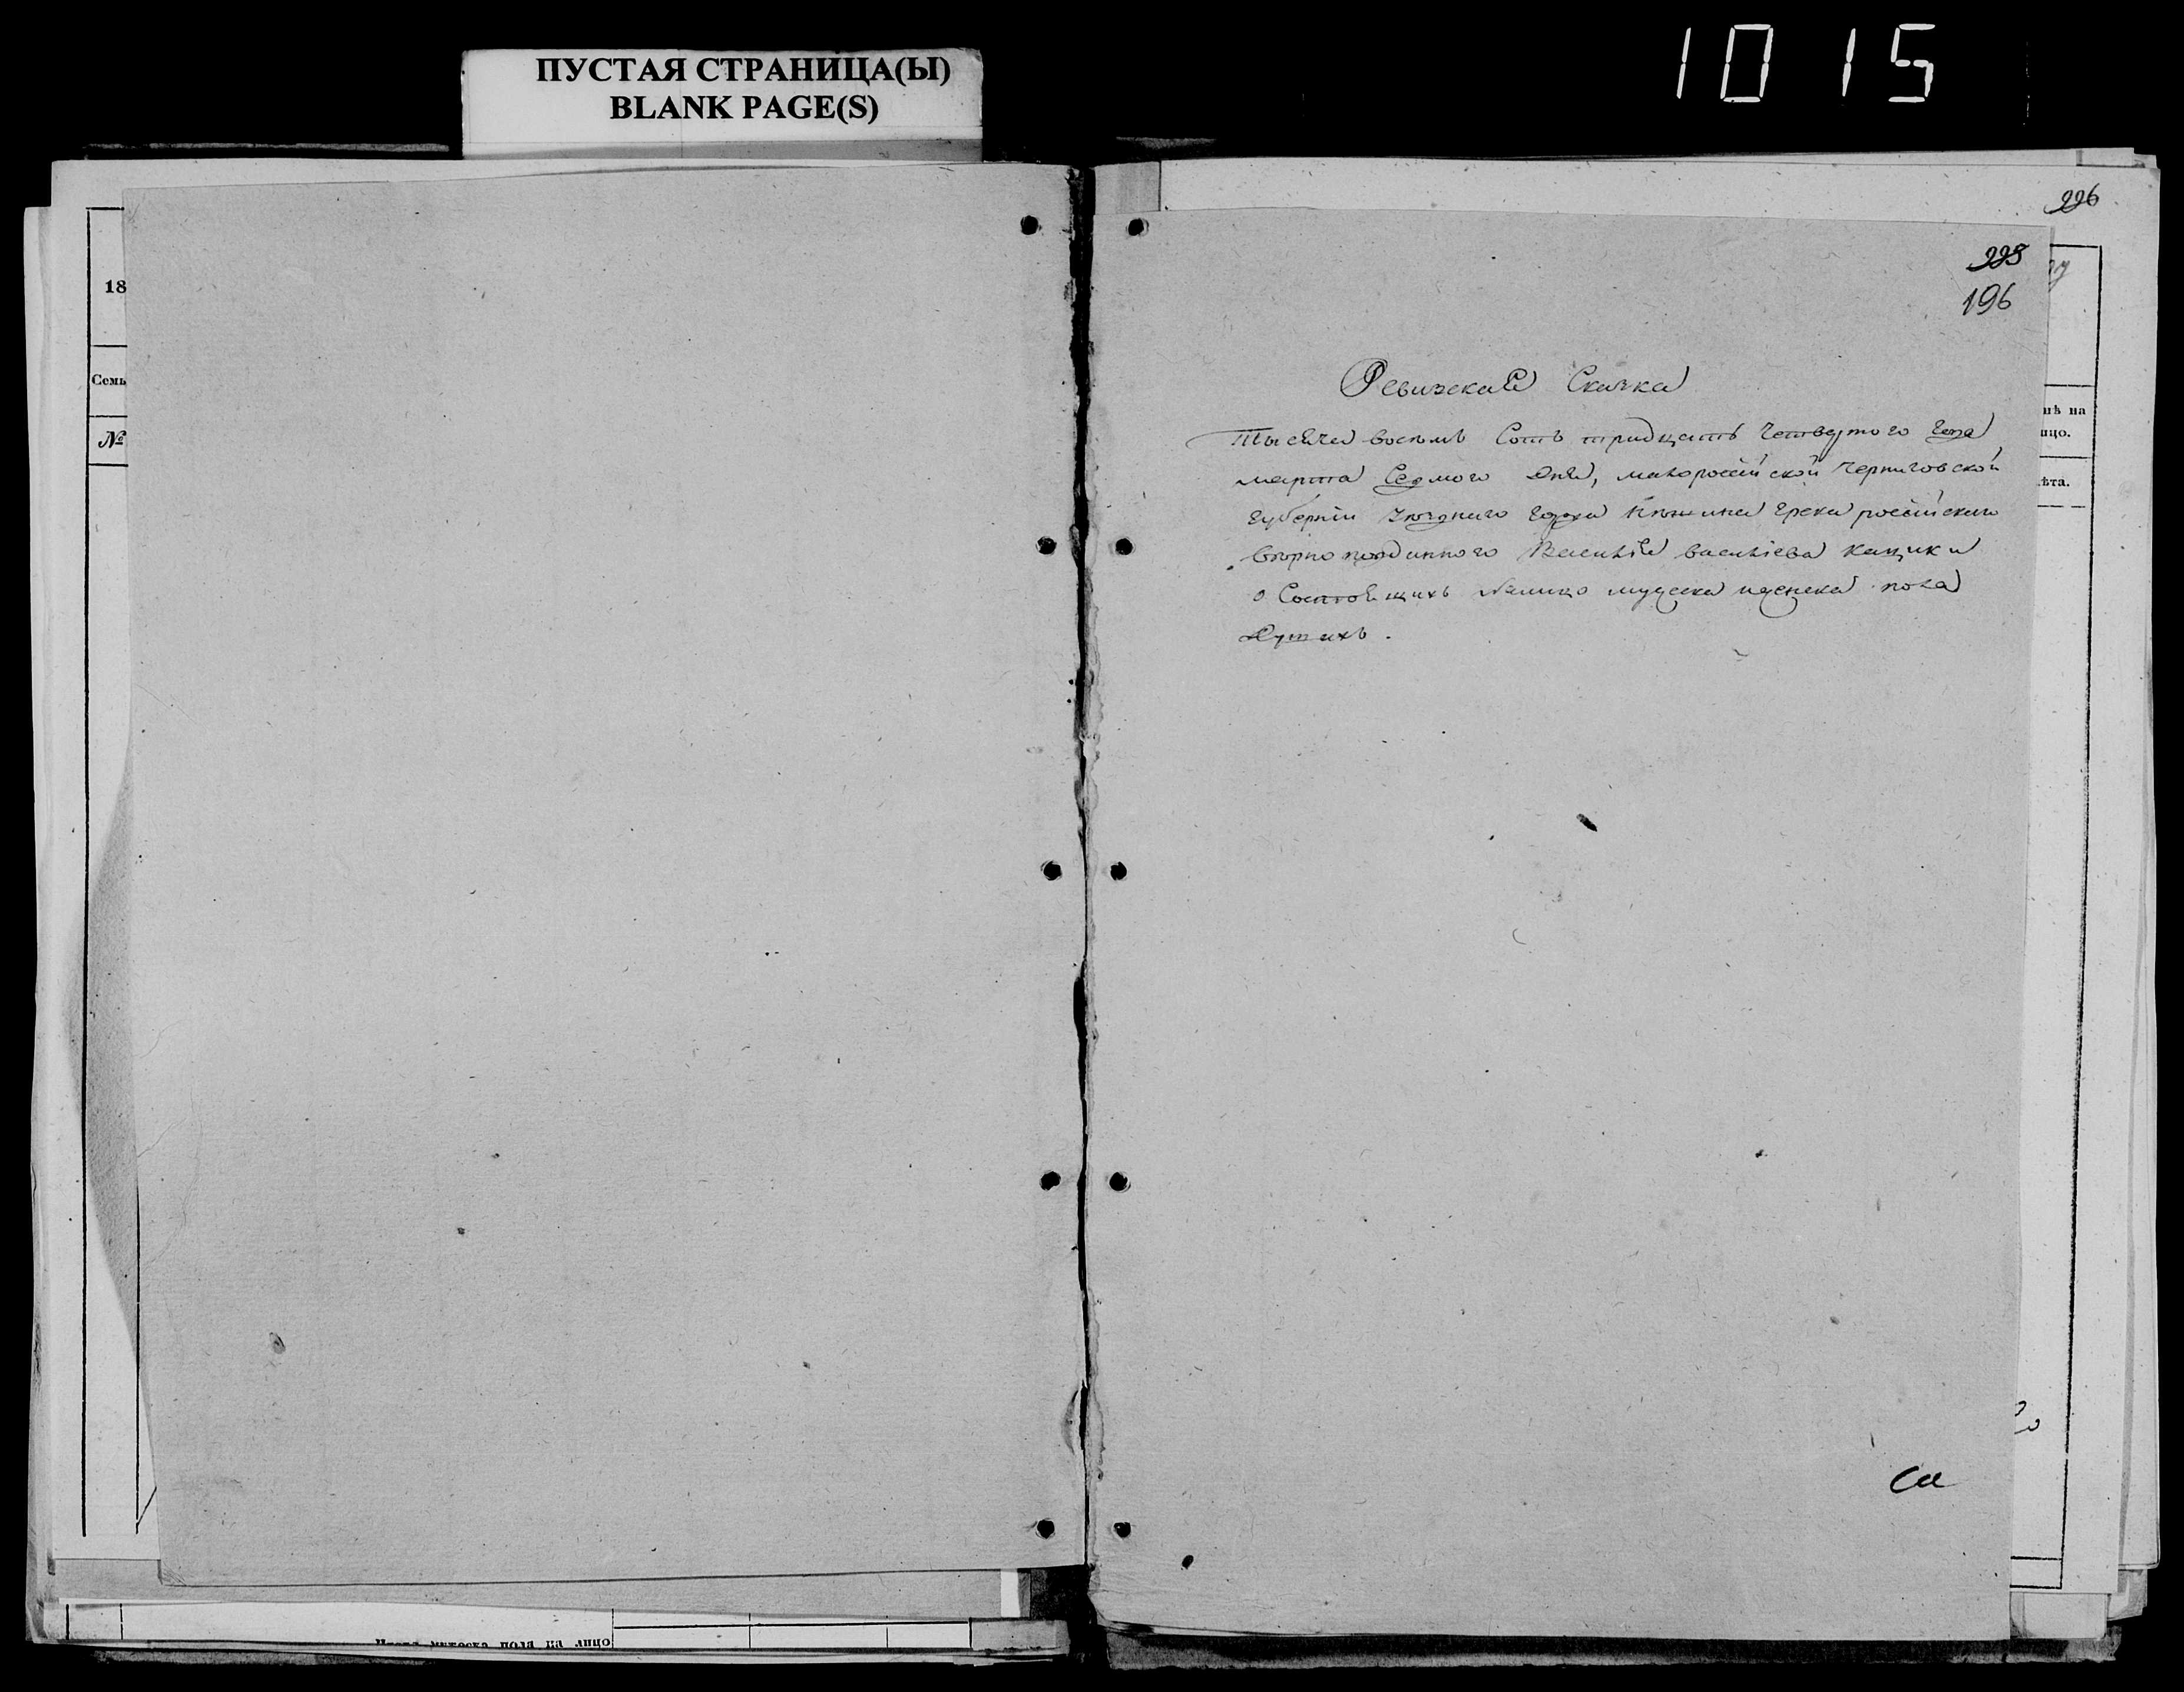 ПУСТАЯ СТРАНИЦА(Ы)
BLANK PAGE(S)
1015
18
Семь
№
226
225
196
Ревизская Сказка
Тысяча восемь Сотъ тридцать Четвертого Года
марта Седмого Дня, малоросійской Черниговской
Губерніи Уезднаго Города Нѣжина Грека російскаго
Василія васильева
о Состоящихъ Налицо мужеска иженска пола
Душахъ.
нѣ на
ицо.
ѣта.
Са
мужеска пола на лицо